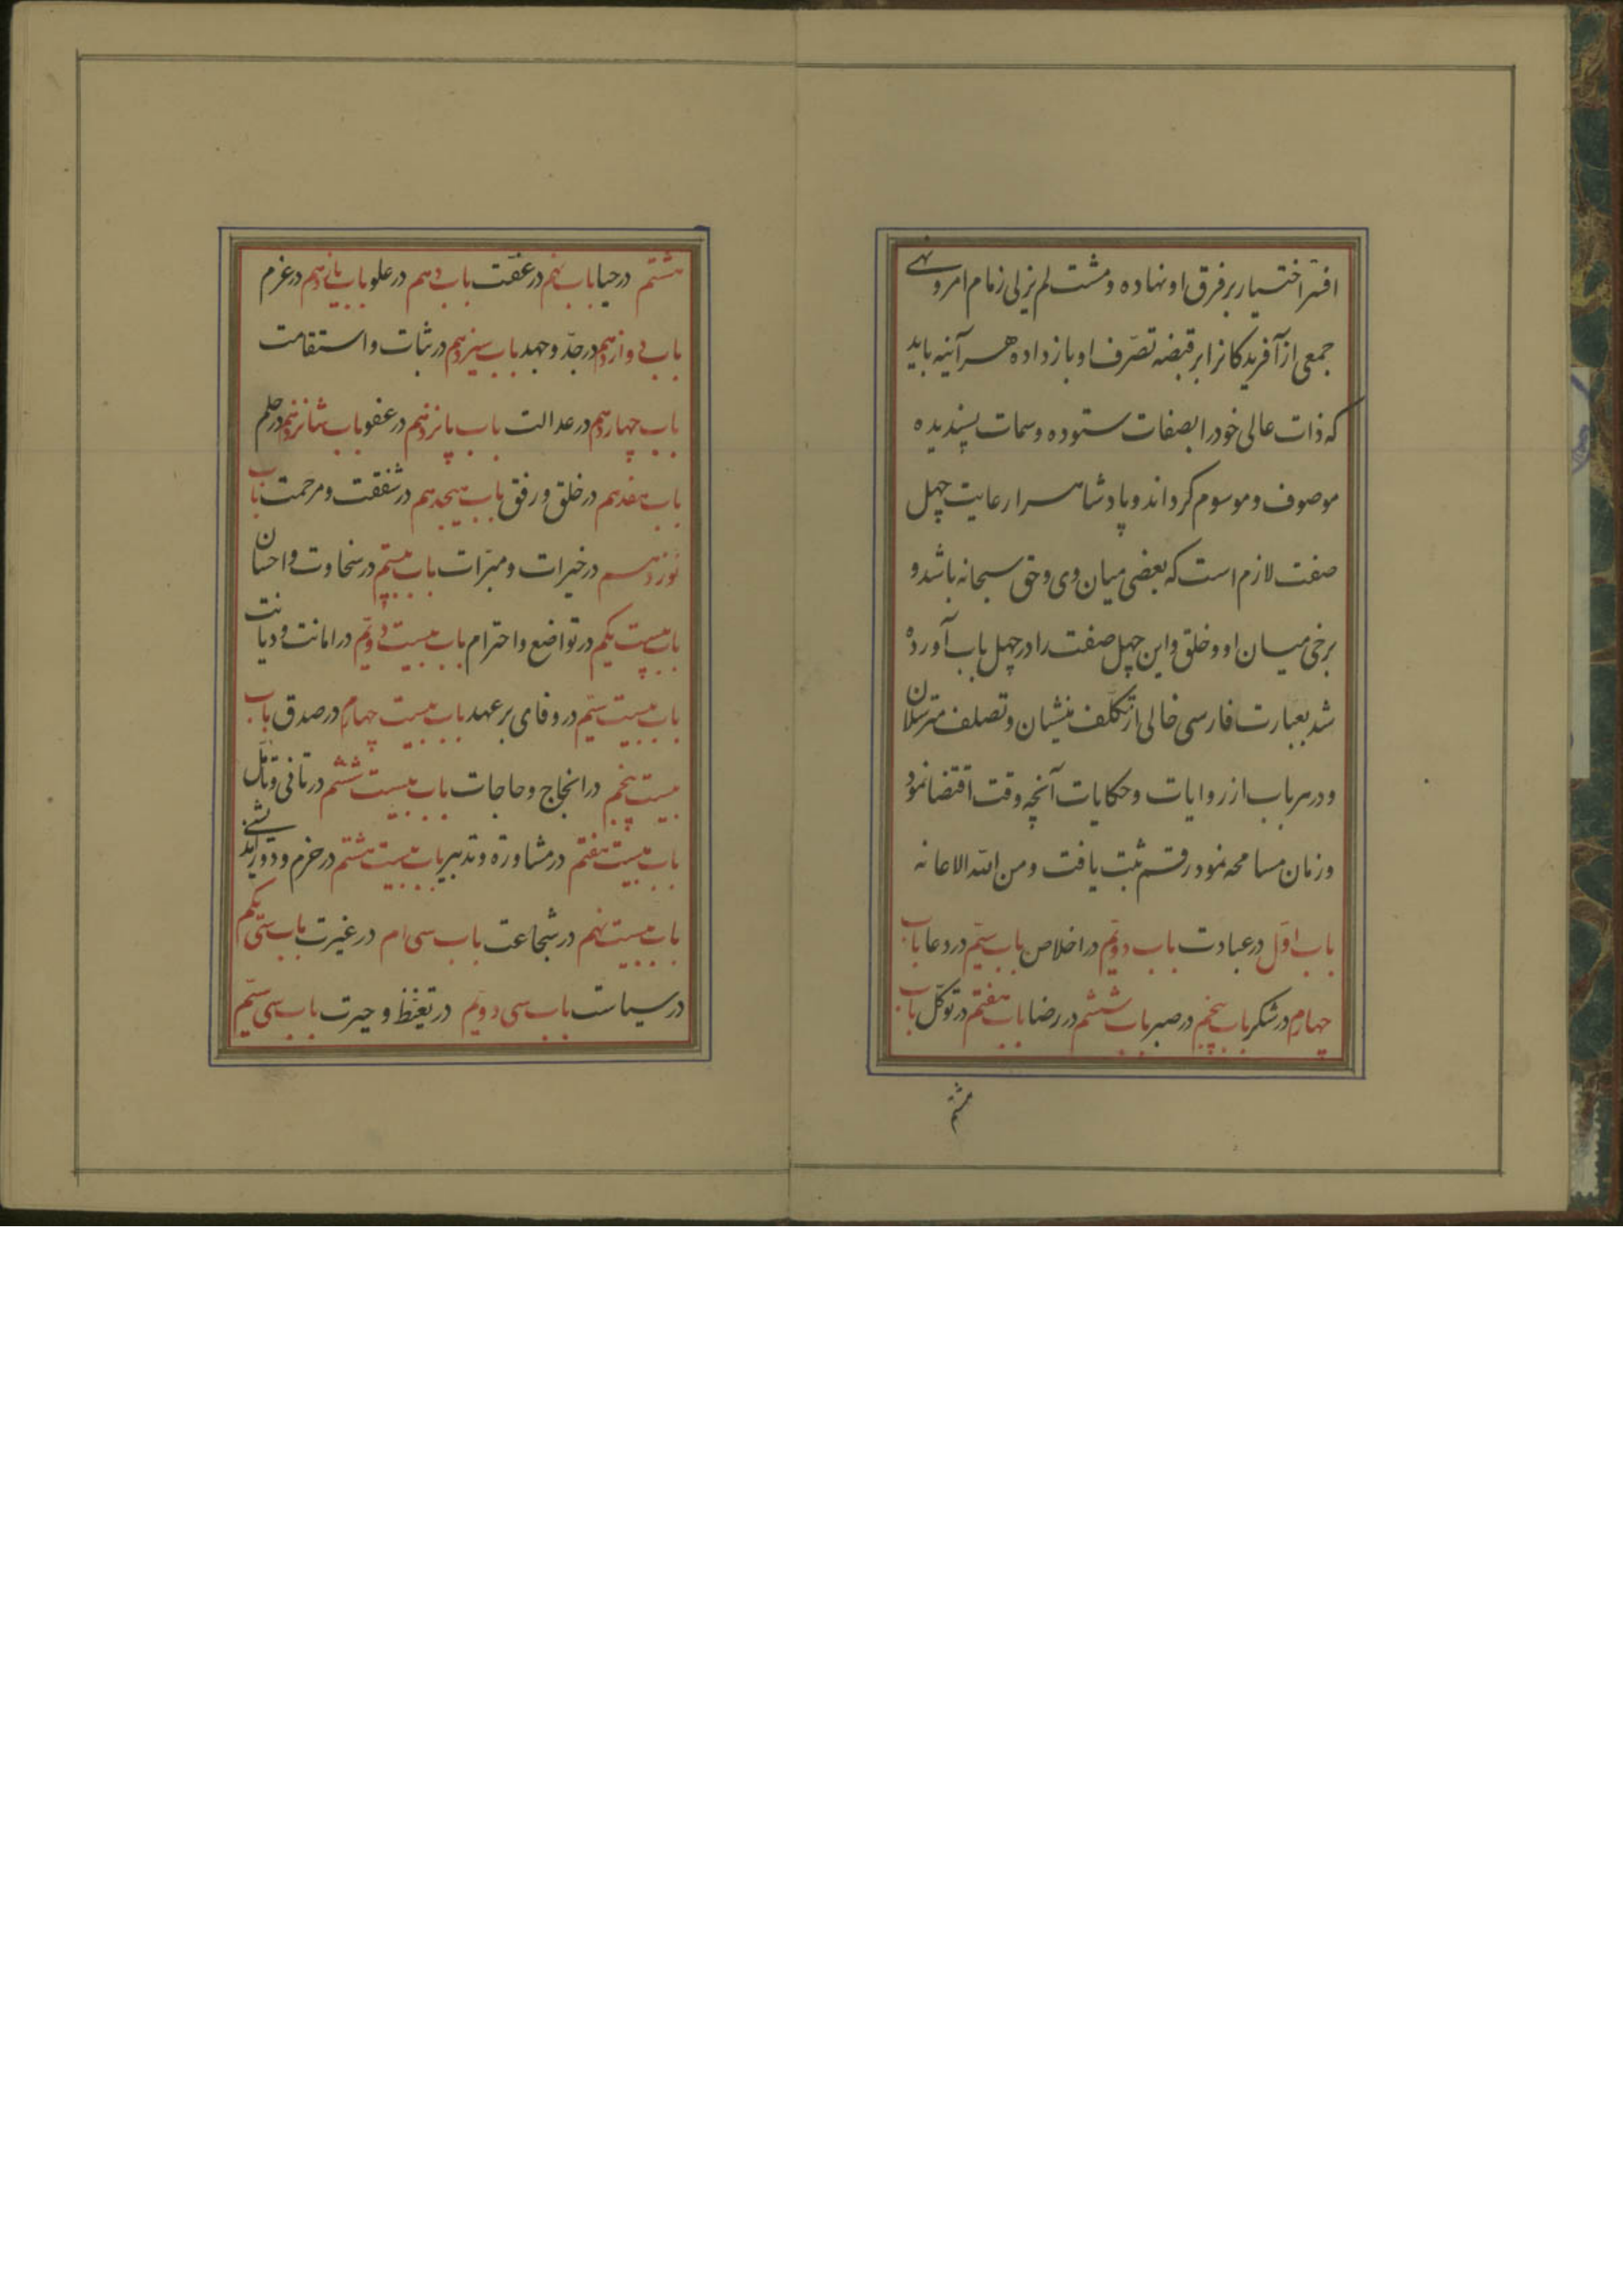 افسر اختیار بر فرق او نهاده و مشت لم یزلی زمام امر و نهی
جمعی از آفریدکانرا بر قبضه تصرّف او باز داده هر آینه باید
که ذات عالی خود را بصفات ستوده و سمات پسندیده
موصوف و موسوم کرداند و پادشاه را رعایت چهل
صفت لازم است که بعضی میان وی و حق سبحانه باشد و
برخی میان او و خلق و این چهل صفت را در چهل باب آورده
شد بعبارت فارسی خالی از تکلف منشیان و تصلف مترسلان
و در هر باب از روایات و حکایات آنچه وقت اقتضا نمود
و زمان مسامحه نمود رقم ثبت یافت و من الله الاعانه
باب اوّل در عبادت باب دویّم در اخلاص باب سیّم در دعا باب
چهارم در شکر باب پنجم در صبر باب ششم در رضا باب هفتم در توکّل باب
هشتم
هشتم در حیا باب نهم در عفّت باب دهم در علو باب یازدهم در عزم
باب دوازدهم در جدّ و جهد باب سیزدهم در ثبات و استقامت
باب چهاردهم در عدالت باب پانزدهم در عفو باب شانزدهم در حلم
باب هفدهم در خلق و رفق باب هیجدهم در شفقت و مرحمت باب
نوزدهم در خیرات و مبرّات باب بیستم در سخاوت و احسان
باب بیست یکم در تواضع و احترام باب بیست دویّم در امانت و دیانت
باب بیست سیّم در وفای بر عهد باب بیست چهارم در صدق باب
بیست پنجم در انجاج و حاجات باب بیست ششم در تانی و تأمّل
باب بیست هفتم در مشاوره و تدبیر باب بیست هشتم در حزم و دوراندیشی
باب بیست نهم در شجاعت باب سی ام در غیرت باب سی یکم
در سیاست باب سی دویّم در تیقّظ و حیرت باب سی سیّم